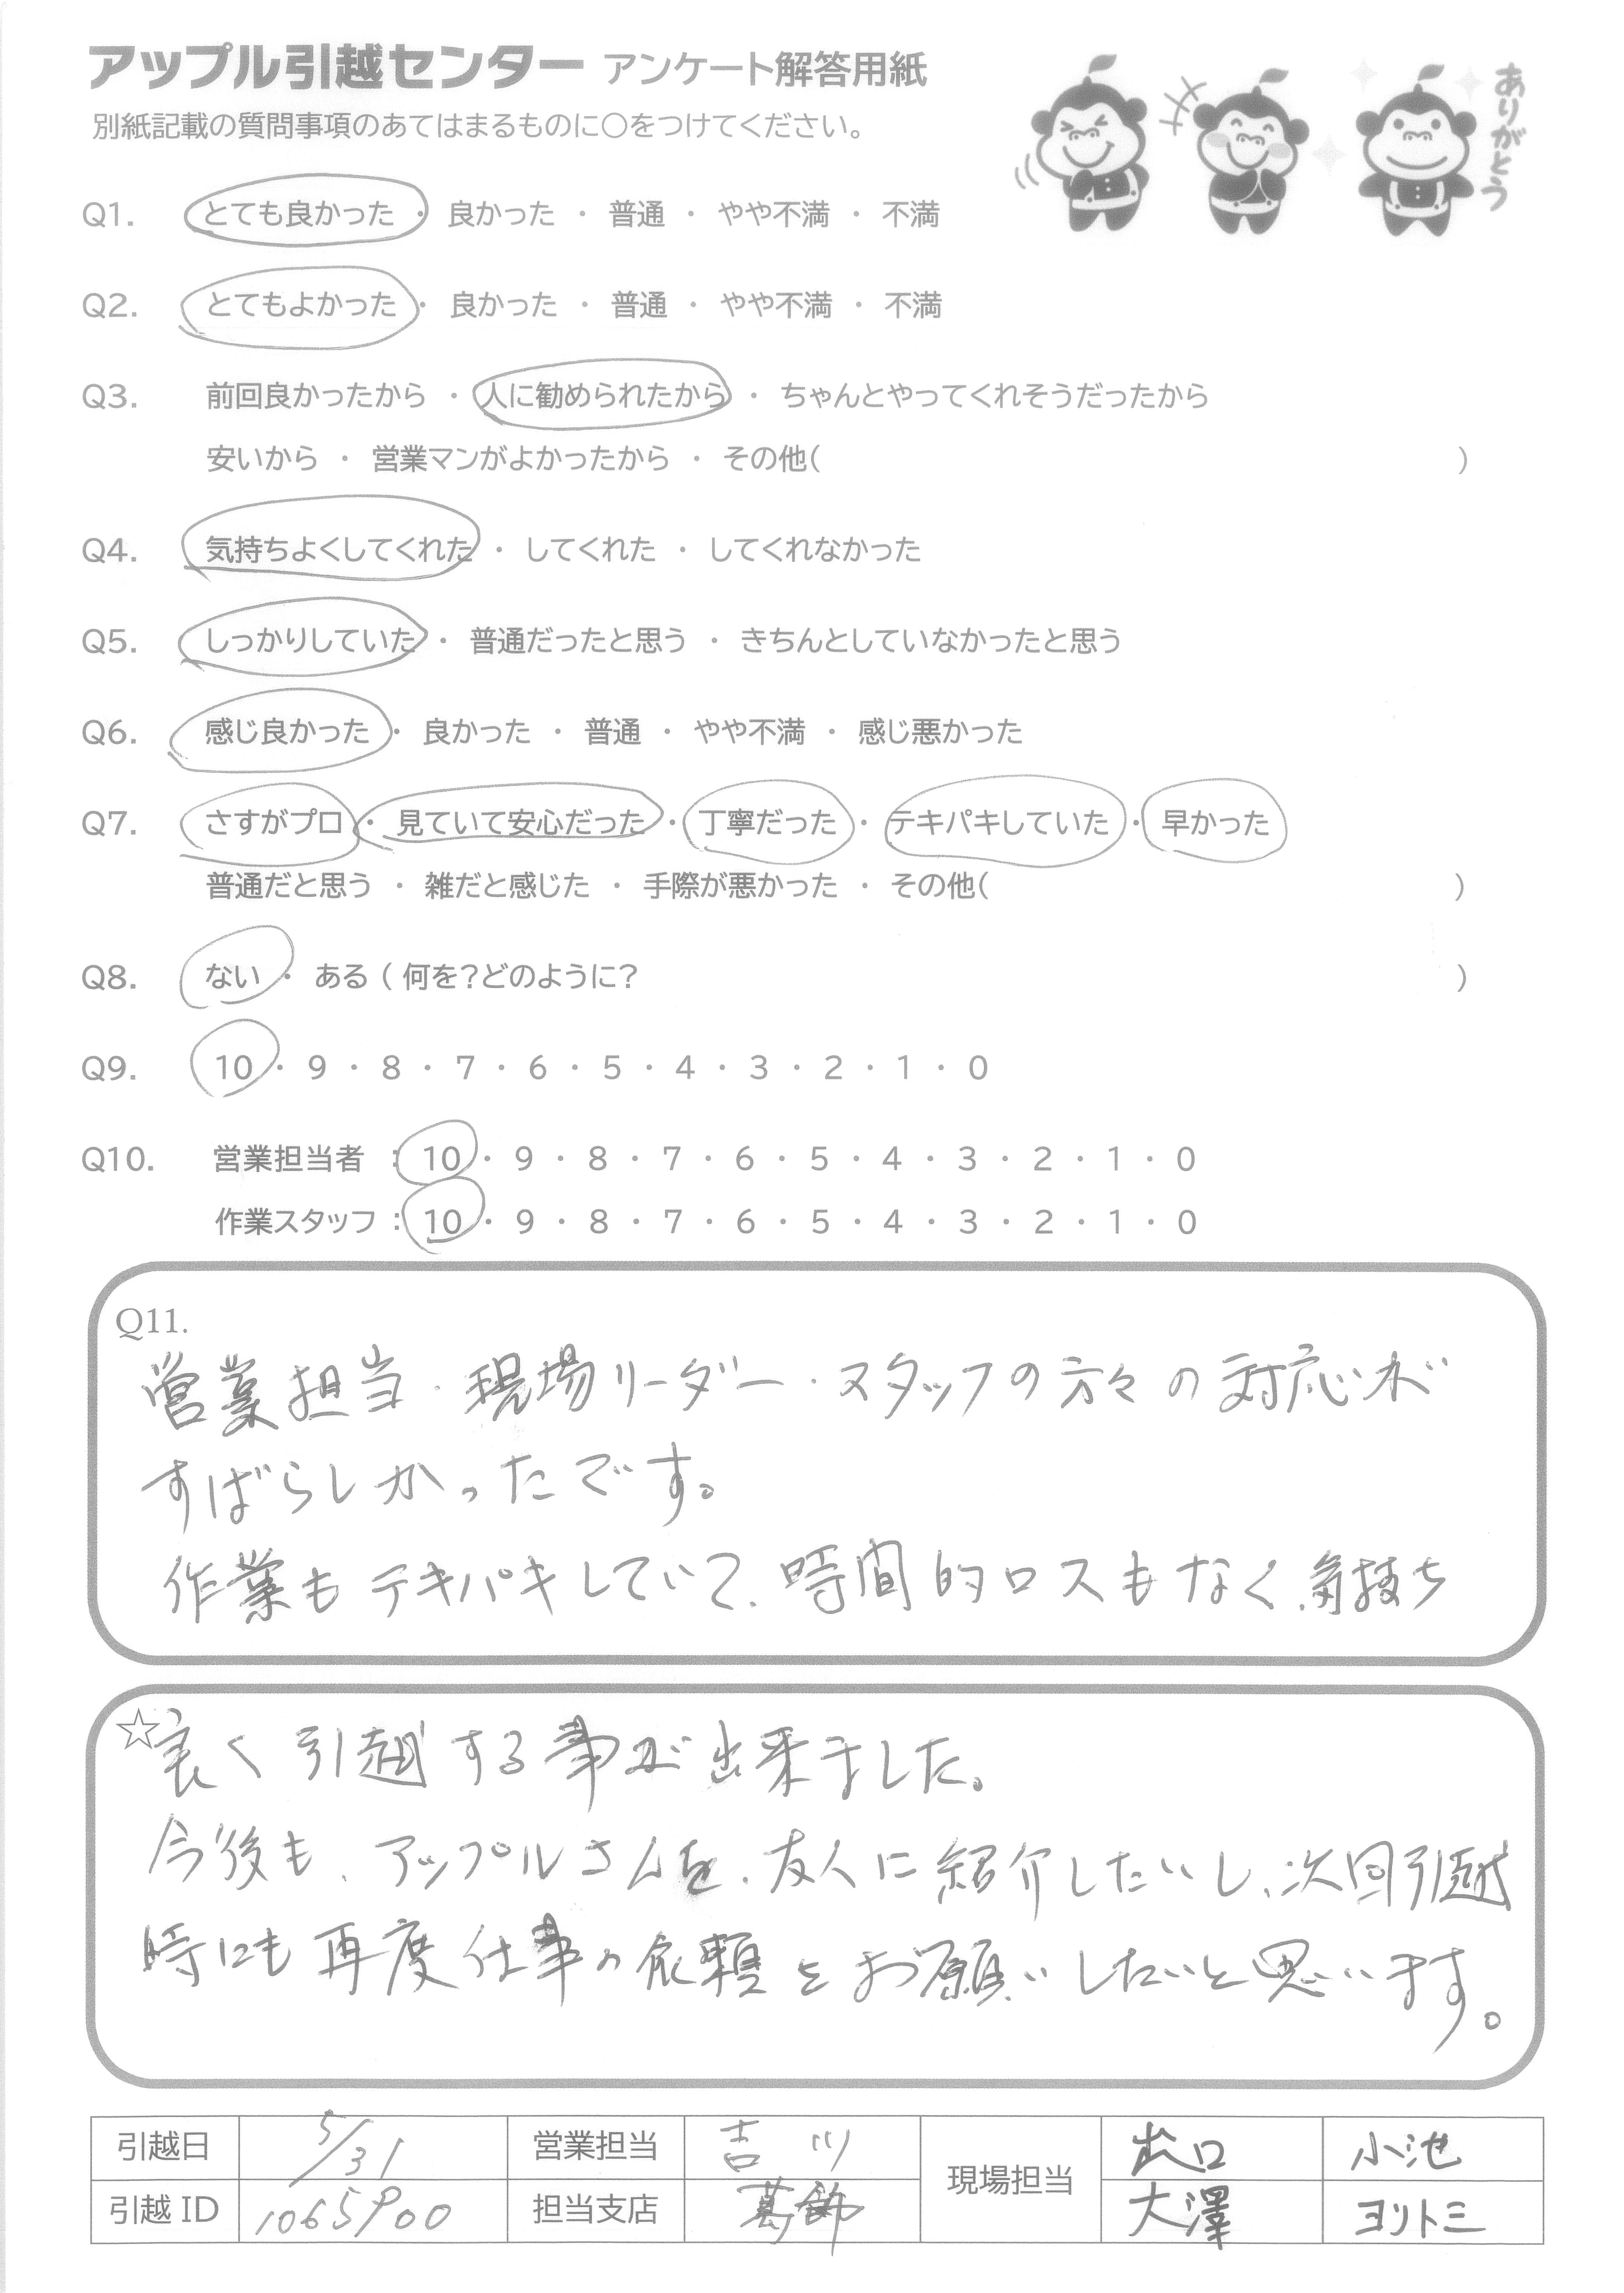 アップル引越センター アンケート解答用紙
ありがとう
別紙記載の質問事項のあてはまるものに○をつけてください。
Q1. とても良かった ・ 良かった ・ 普通 ・ やや不満 ・ 不満
Q2. とてもよかった ・ 良かった ・ 普通 ・ やや不満 ・ 不満
Q3. 前回良かったから ・ 人に勧められたから ・ ちゃんとやってくれそうだったから
安いから ・ 営業マンがよかったから ・ その他( )
Q4. 気持ちよくしてくれた ・ してくれた ・ してくれなかった
Q5. しっかりしていた ・ 普通だったと思う ・ きちんとしていなかったと思う
Q6. 感じ良かった ・ 良かった ・ 普通 ・ やや不満 ・ 感じ悪かった
Q7. さすがプロ ・ 見ていて安心だった ・ 丁寧だった ・ テキパキしていた ・ 早かった
普通だと思う ・ 雑だと感じた ・ 手際が悪かった ・ その他( )
Q8. ない ・ ある ( 何を?どのように? )
Q9. 10 ・ 9 ・ 8 ・ 7 ・ 6 ・ 5 ・ 4 ・ 3 ・ 2 ・ 1 ・ 0
Q10. 営業担当者 : 10 ・ 9 ・ 8 ・ 7 ・ 6 ・ 5 ・ 4 ・ 3 ・ 2 ・ 1 ・ 0
作業スタッフ : 10 ・ 9 ・ 8 ・ 7 ・ 6 ・ 5 ・ 4 ・ 3 ・ 2 ・ 1 ・ 0
Q11.
営業担当・現場リーダー・スタッフの方々の対応が
すばらしかったです。
作業もテキパキしていて、時間的ロスもなく、気持ち
☆良く引越する事が出来ました。
今後も、アップルさんを、友人に紹介したいし、次回引越
時にも再度仕事の依頼をお願いしたいと思います。
引越日 5/31 営業担当 吉川 現場担当 出口 小池
引越ID 1065900 担当支店 葛飾 大澤 ヨリトミ